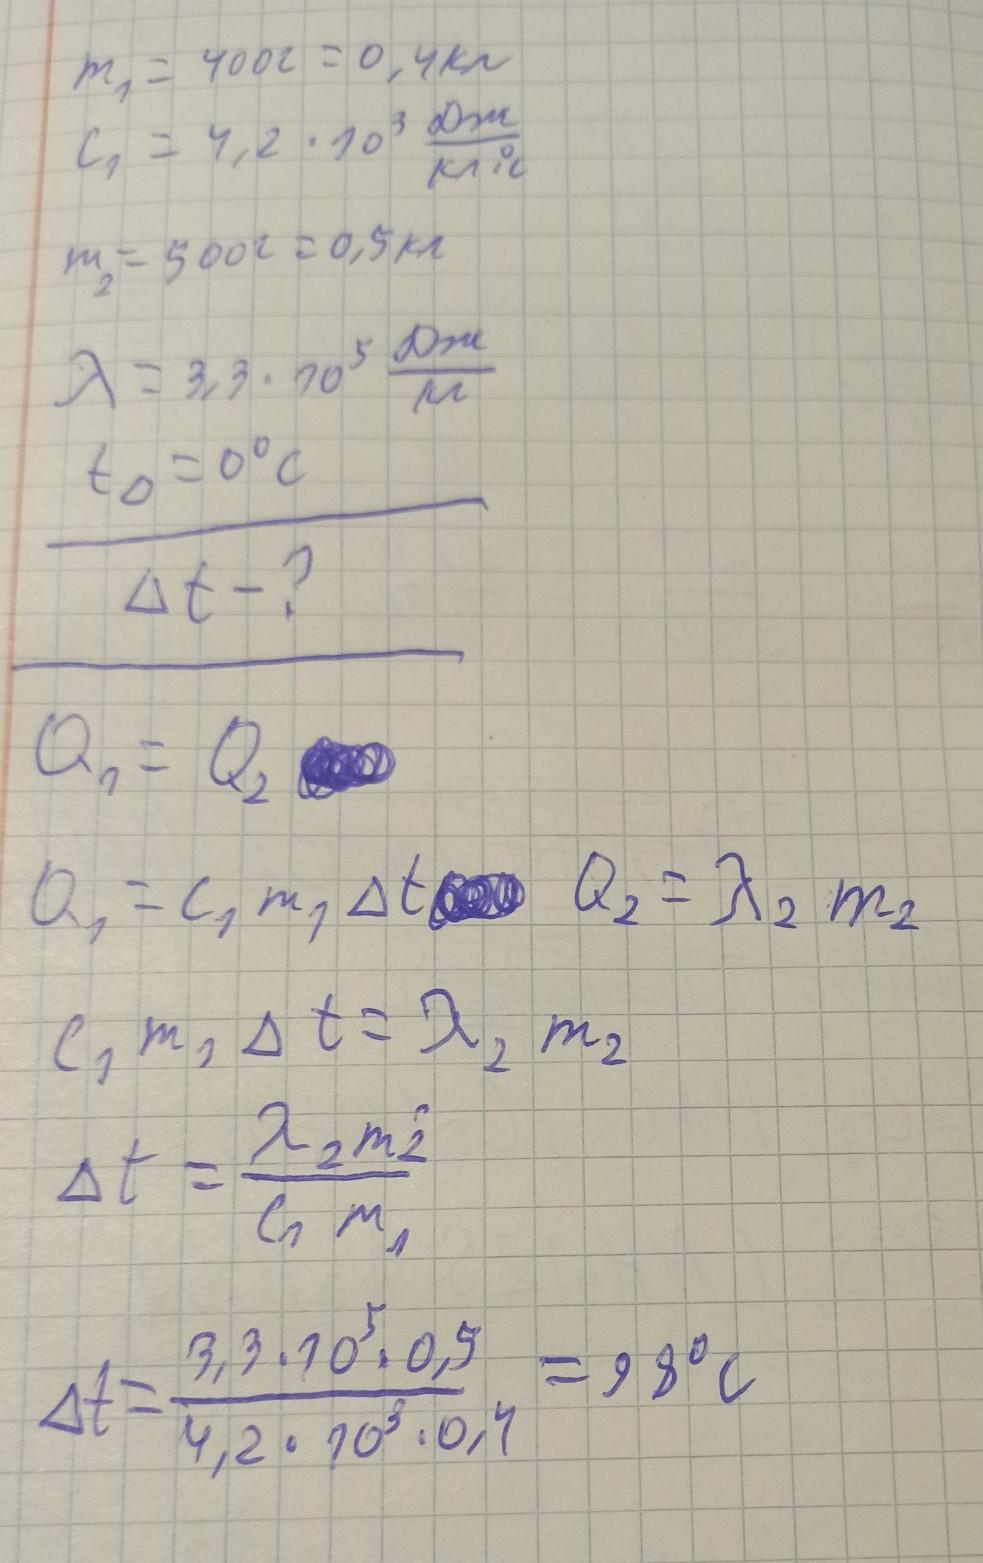 m₁ = 400г = 0,4кг
c₁ = 4,2 · 10³ Дж/кг·°С
m₂ = 500г = 0,5кг
λ = 3,3 · 10⁵ Дж/кг
t₀ = 0°С
Δt - ?
Q₁ = Q₂
Q₁ = c₁ m₁ Δt Q₂ = λ₂ m₂
c₁ m₁ Δt = λ₂ m₂
Δt = λ₂ m₂ / c₁ m₁
Δt = 3,3 · 10⁵ · 0,5 / 4,2 · 10³ · 0,4 = 98°С